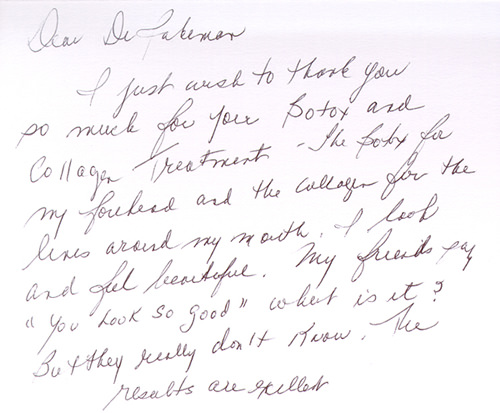 Dear Dr Fakeman
I just wish to thank you
so much for your Botox and
Collagen Treatment - The Botox for
my forehead and the collagen for the
lines around my mouth. I look
and feel beautiful. My friends say
"You Look So Good" what is it?
But they really don't know. The
results are excellent